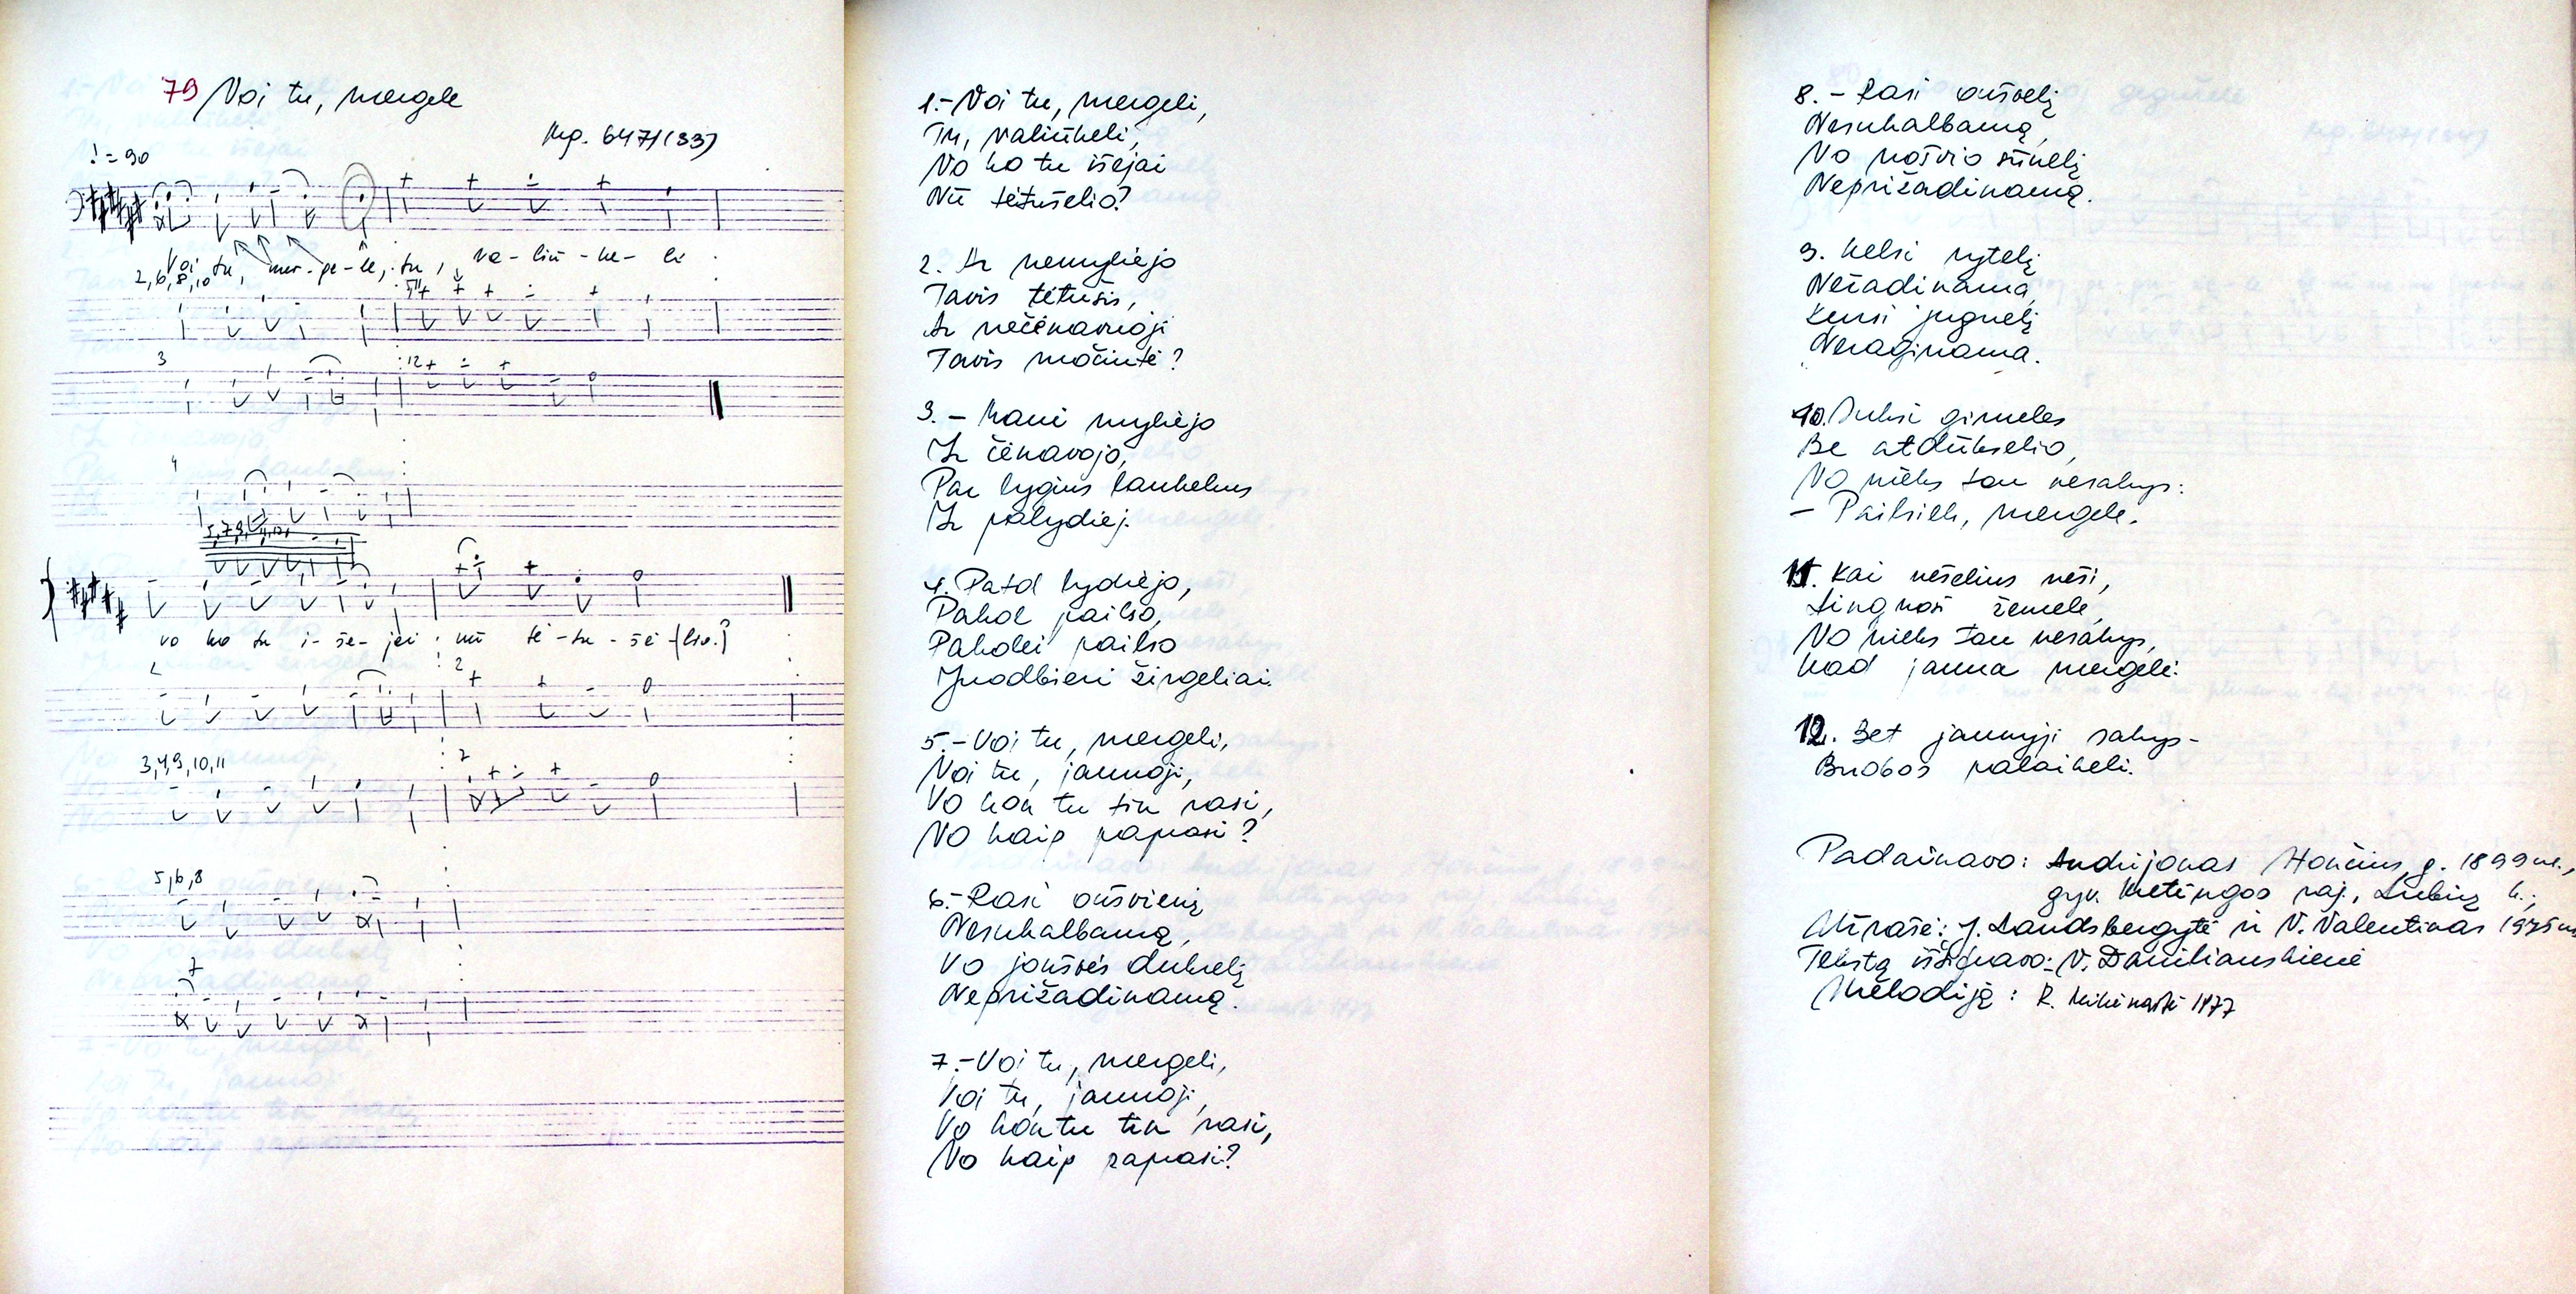 79 Voi tu, mergele
Mg. 6471(33)
! = 90
Voi tu, mer-ge-le, tu, va-liū-ke-li
2,6,8,10
3
4
5,7,9,11,12
vo ko tu i-šė-jei nū tė-tu-šė-(lio?)
2
2
3,4,9,10,11
2
5,6,8
7
1.- Voi tu, mergeli,
Tu, valiūkeli,
Vo ko tu išejai
Nū tėtušelio?
2. Ar nemylėjo
Tavis tėtušis,
Ar nečėnavuoji
Tavis močiutė?
3. - Mani mylėjo
Ir čėnavojo,
Par lygius laukelius
Ir palydiej.
4. Patol lydiejo,
Pakol pailso,
Pakolei pailso
Juodbieri žirgeliai.
5.- Voi tu, mergeli,
Voi tu, jaunoji,
Vo kon tu tin rasi,
Vo kaip paprasi?
6.- Rasi ošvienį
Nesukalbamą,
Vo jošvės dukrelį
Neprižadinamą.
7.- Voi tu, mergeli,
Voi tu, jaunoji,
Vo kon tu tin rasi,
Vo kaip paprasi?
8. - Rasi ošvelį
Nesukalbamą,
Vo nošvio sūnelį
Neprižadinamą.
9. Kelsi rytelį
Nežadinama,
Kursi jugnelį
Neraginama.
10. Suksi girneles
Be atdūkselio,
Vo nieks tau nesakys:
- Pailsiek, mergele.
11. Kai nešelius neši,
Lingnosi žemele,
Vo nieks tau nesakys,
Kad jauna mergelė.
12. Bet jaunyji sakys-
Buobos palaikeli.
Padainavo: Andrijonas g. 1899 m.,
gyv. Kretingos raj., Lubių k.;
Užrašė: J. Landsbergytė ir V. Valentinas 1975 m.
Tekstą išsifravo: V. Daniliauskienė
Melodiją: R. 1977